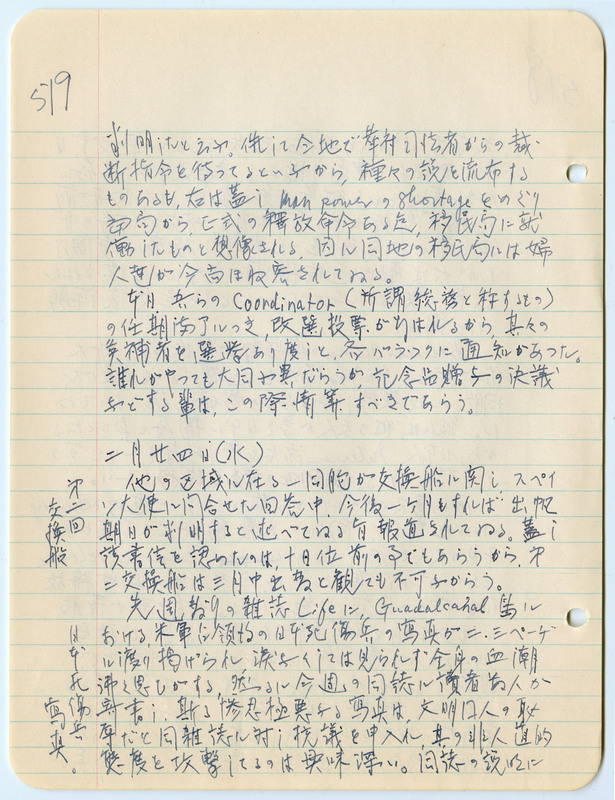 519
判明したと云ふ。併して今地で華府司法者からの裁
断指令を待ってるといふから、種々の説を流布する
ものあるも、右は蓋し man power の shortage をめぐり
から、正式の釋放命令ある迄、移民局に就
働したものと想像される、因ル同地の移民局には婦
人連が今尚ほ収容されてゐる。
本日 Coordinator (所謂総務と称するもの)
の任期満了ルつき、改選投票が行はれるから、其々の
候補者を選挙あり度しと、各バラックに通知があった。
誰れがやっても大同小異だらうが、記念品贈与の決議
などする輩は、この際情算すべきであらう。
二月廿四日(水)
第二回
交換船
他の区域ル在る一同胞が交換船ル関し、スペイ
ン大使ル問合せた回答中、今後一ヶ月もすれば出帆
期日が判明すると述べてゐる旨報道されてゐる。蓋し
該書信を認めたのは、十日位前の事でもあらうから、第
二交換船は三月中出発と観ても不可なからう。
日本死傷兵
写真。
先週發行の雑誌 Life に、Guadalcanal 島ル
おける、米軍占領地の日本死傷兵の写真が二、三ページ
ル渡り掲げられ、涙なくしては見られず全身の血潮
沸く思ひがする、然るに今週の同誌ル讀者ゟ人が
寄書し、斯る惨忍極悪なる写真は、文明国人の恥
辱だと同雑誌ル対し抗議を申入れ其の非人道的
態度を攻撃してるのは興味深い。同誌の説明に